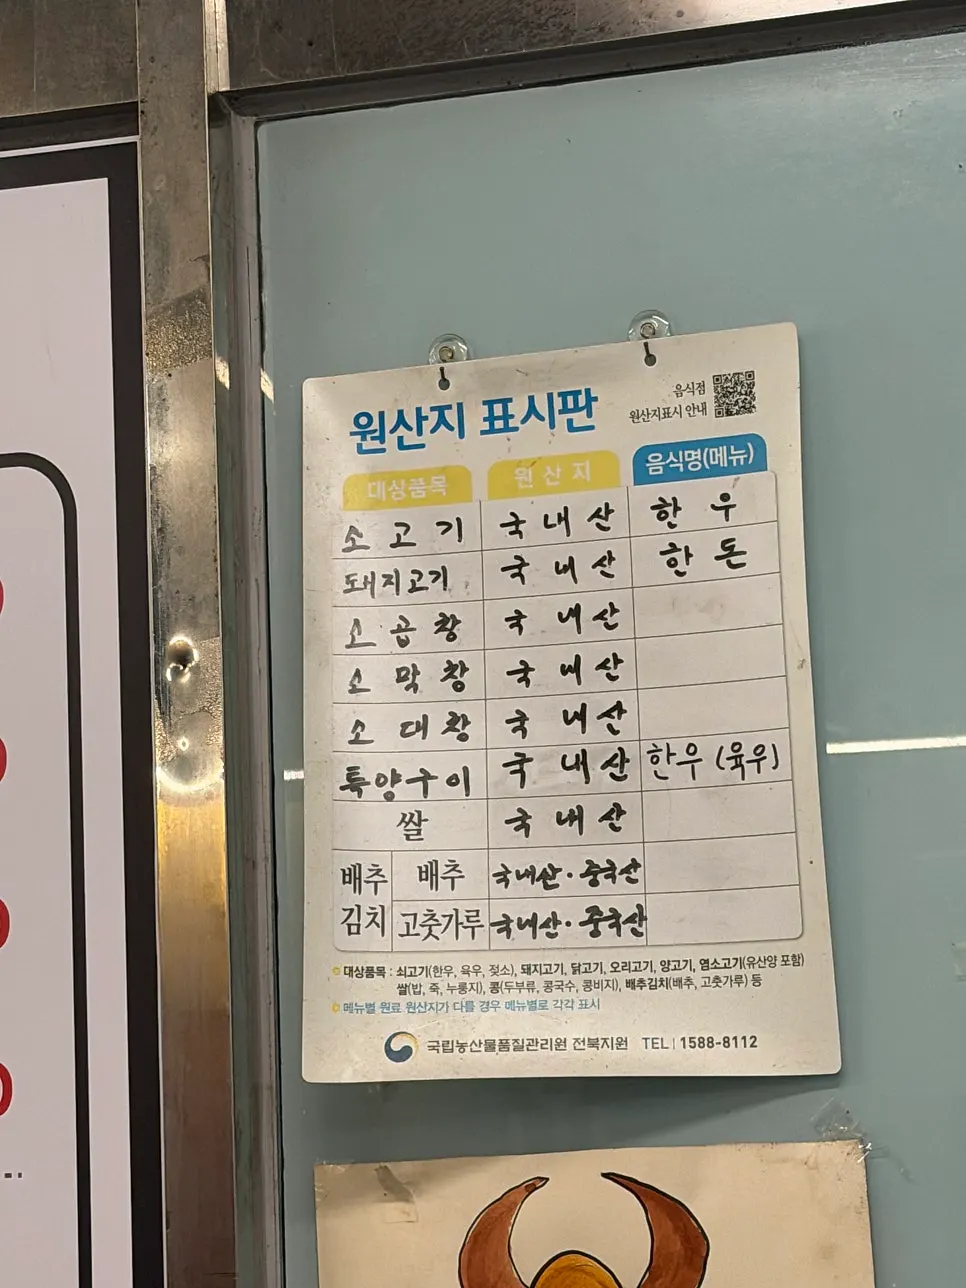 음식점
원산지표시 안내
원산지 표시판
대상품목 원산지 음식명(메뉴)
소고기 국내산 한우
돼지고기 국내산 한돈
소곱창 국내산
소막창 국내산
소대창 국내산
특양구이 국내산 한우(육우)
쌀 국내산
배추김치 배추 국내산·중국산
고춧가루 국내산·중국산
대상품목 : 쇠고기(한우, 육우, 젖소), 돼지고기, 닭고기, 오리고기, 양고기, 염소고기(유산양 포함)
쌀(밥, 죽, 누룽지), 콩(두부류, 콩국수, 콩비지), 배추김치(배추, 고춧가루) 등
메뉴별 원료 원산지가 다를 경우 메뉴별로 각각 표시
국립농산물품질관리원 전북지원 TEL | 1588-8112